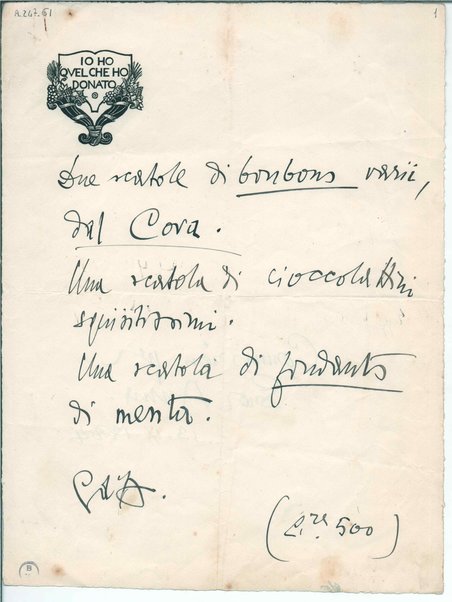 A.247.61
1
IO HO
QVEL CHE HO
DONATO
Due scatole di bonbons varii,
dal Cova.
Una scatola di cioccolattini
squisitissimi.
Una scatola di fondants
di menta.
(L.re 500)
B